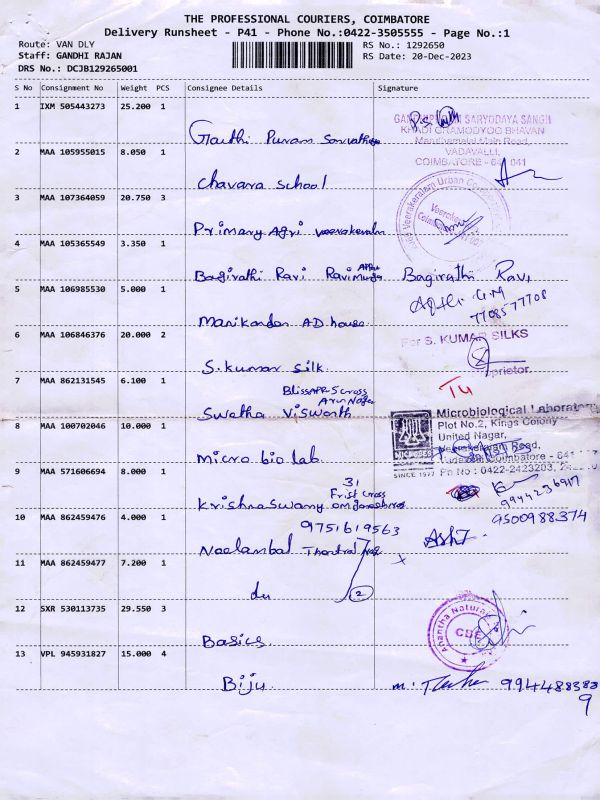 THE PROFESSIONAL COURIERS, COIMBATORE
Delivery Runsheet - P41 - Phone No.:0422-3505555 - Page No.:1
Route: VAN DLY
RS No.: 1292650
Staff: GANDHI RAJAN
RS Date: 20-Dec-2023
DRS No.: DCJB129265001
S No Consignment No Weight PCS Consignee Details Signature
1 IXM 505443273 25.200 1
SARVODAYA SANGH
KHADI GRAMODYOG BHAVAN
Main Road,
VADAVALLI,
COIMBATORE - 641 041
2 MAA 105955015 8.050 1
chavara school
3 MAA 107364059 20.750 3
Veerakeralam Urban
Primary Agri veerakeralm
4 MAA 105365549 3.350 1
Bagirathi Ravi Ravi Bagirathi Ravi
5 MAA 106985530 5.000 1
7708577708
Manikandan AD house.
6 MAA 106846376 20.000 2
For S. KUMAR SILKS
S.kumar silk.
7 MAA 862131545 6.100 1
cross
Swatha Viswanth
8 MAA 100702046 10.000 1
Microbiological Laboratory
Plot No.2, Kings Colony
United Nagar,
Road,
Coimbatore - 641
SINCE 1977 Ph No : 0422-2423203,
micro bio lab.
9 MAA 571606694 8.000 1
31
Frist cross
Krishnaswamy
9944236917
9500988374
10 MAA 862459476 4.000 1
9751619563
Neelambal
11 MAA 862459477 7.200 1
du 2
12 SXR 530113735 29.550 3
Anantha Natural
CBE
Basics.
13 VPL 945931827 15.000 4
Biju. 994488383
9